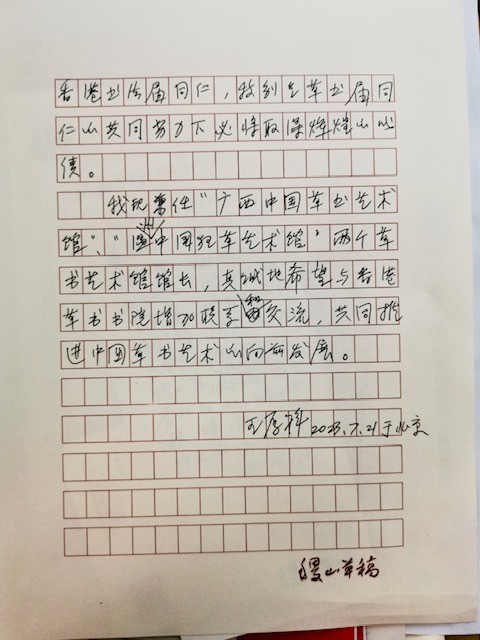 香港书法届同仁，特别是草书届同
仁的共同努力下必将取得辉煌的成
绩。
我现兼任“广西中国草书艺术
馆”、“中国狂草艺术馆”两个草
书艺术馆馆长，真诚地希望与香港
草书书院增加联系和交流，共同推
进中国草书艺术的向前发展。
2023.7.21于北京
稷山草稿